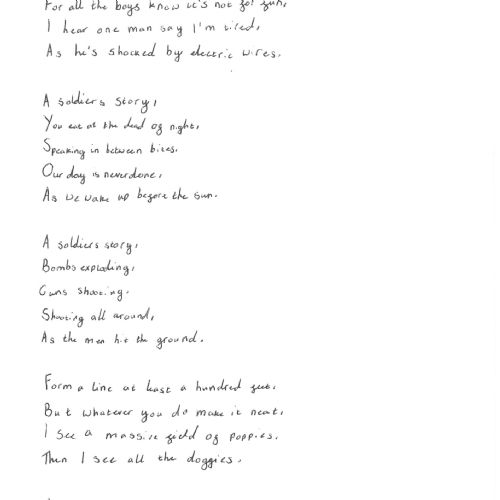 For all the boys know it's not for fun,
I hear one man say I'm tired,
As he's shocked by electric wires.
A soldiers story,
You eat at the dead of night,
Speaking in between bites.
Our day is never done,
As we wake up before the sun.
A soldiers story,
Bombs exploding,
Guns shooting.
Shooting all around,
As the men hit the ground.
Form a line at least a hundred feet,
But whatever you do make it neat,
I see a massive field of poppies.
Then I see all the doggies.